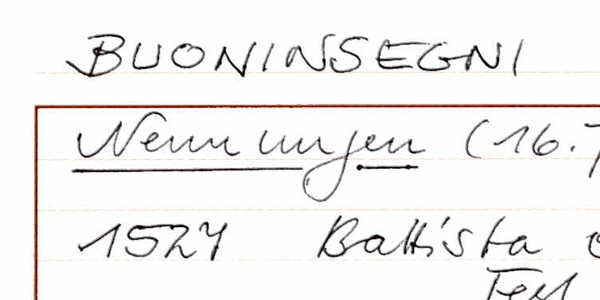 BUONINSEGNI
Nennungen (16.
1527 Battista